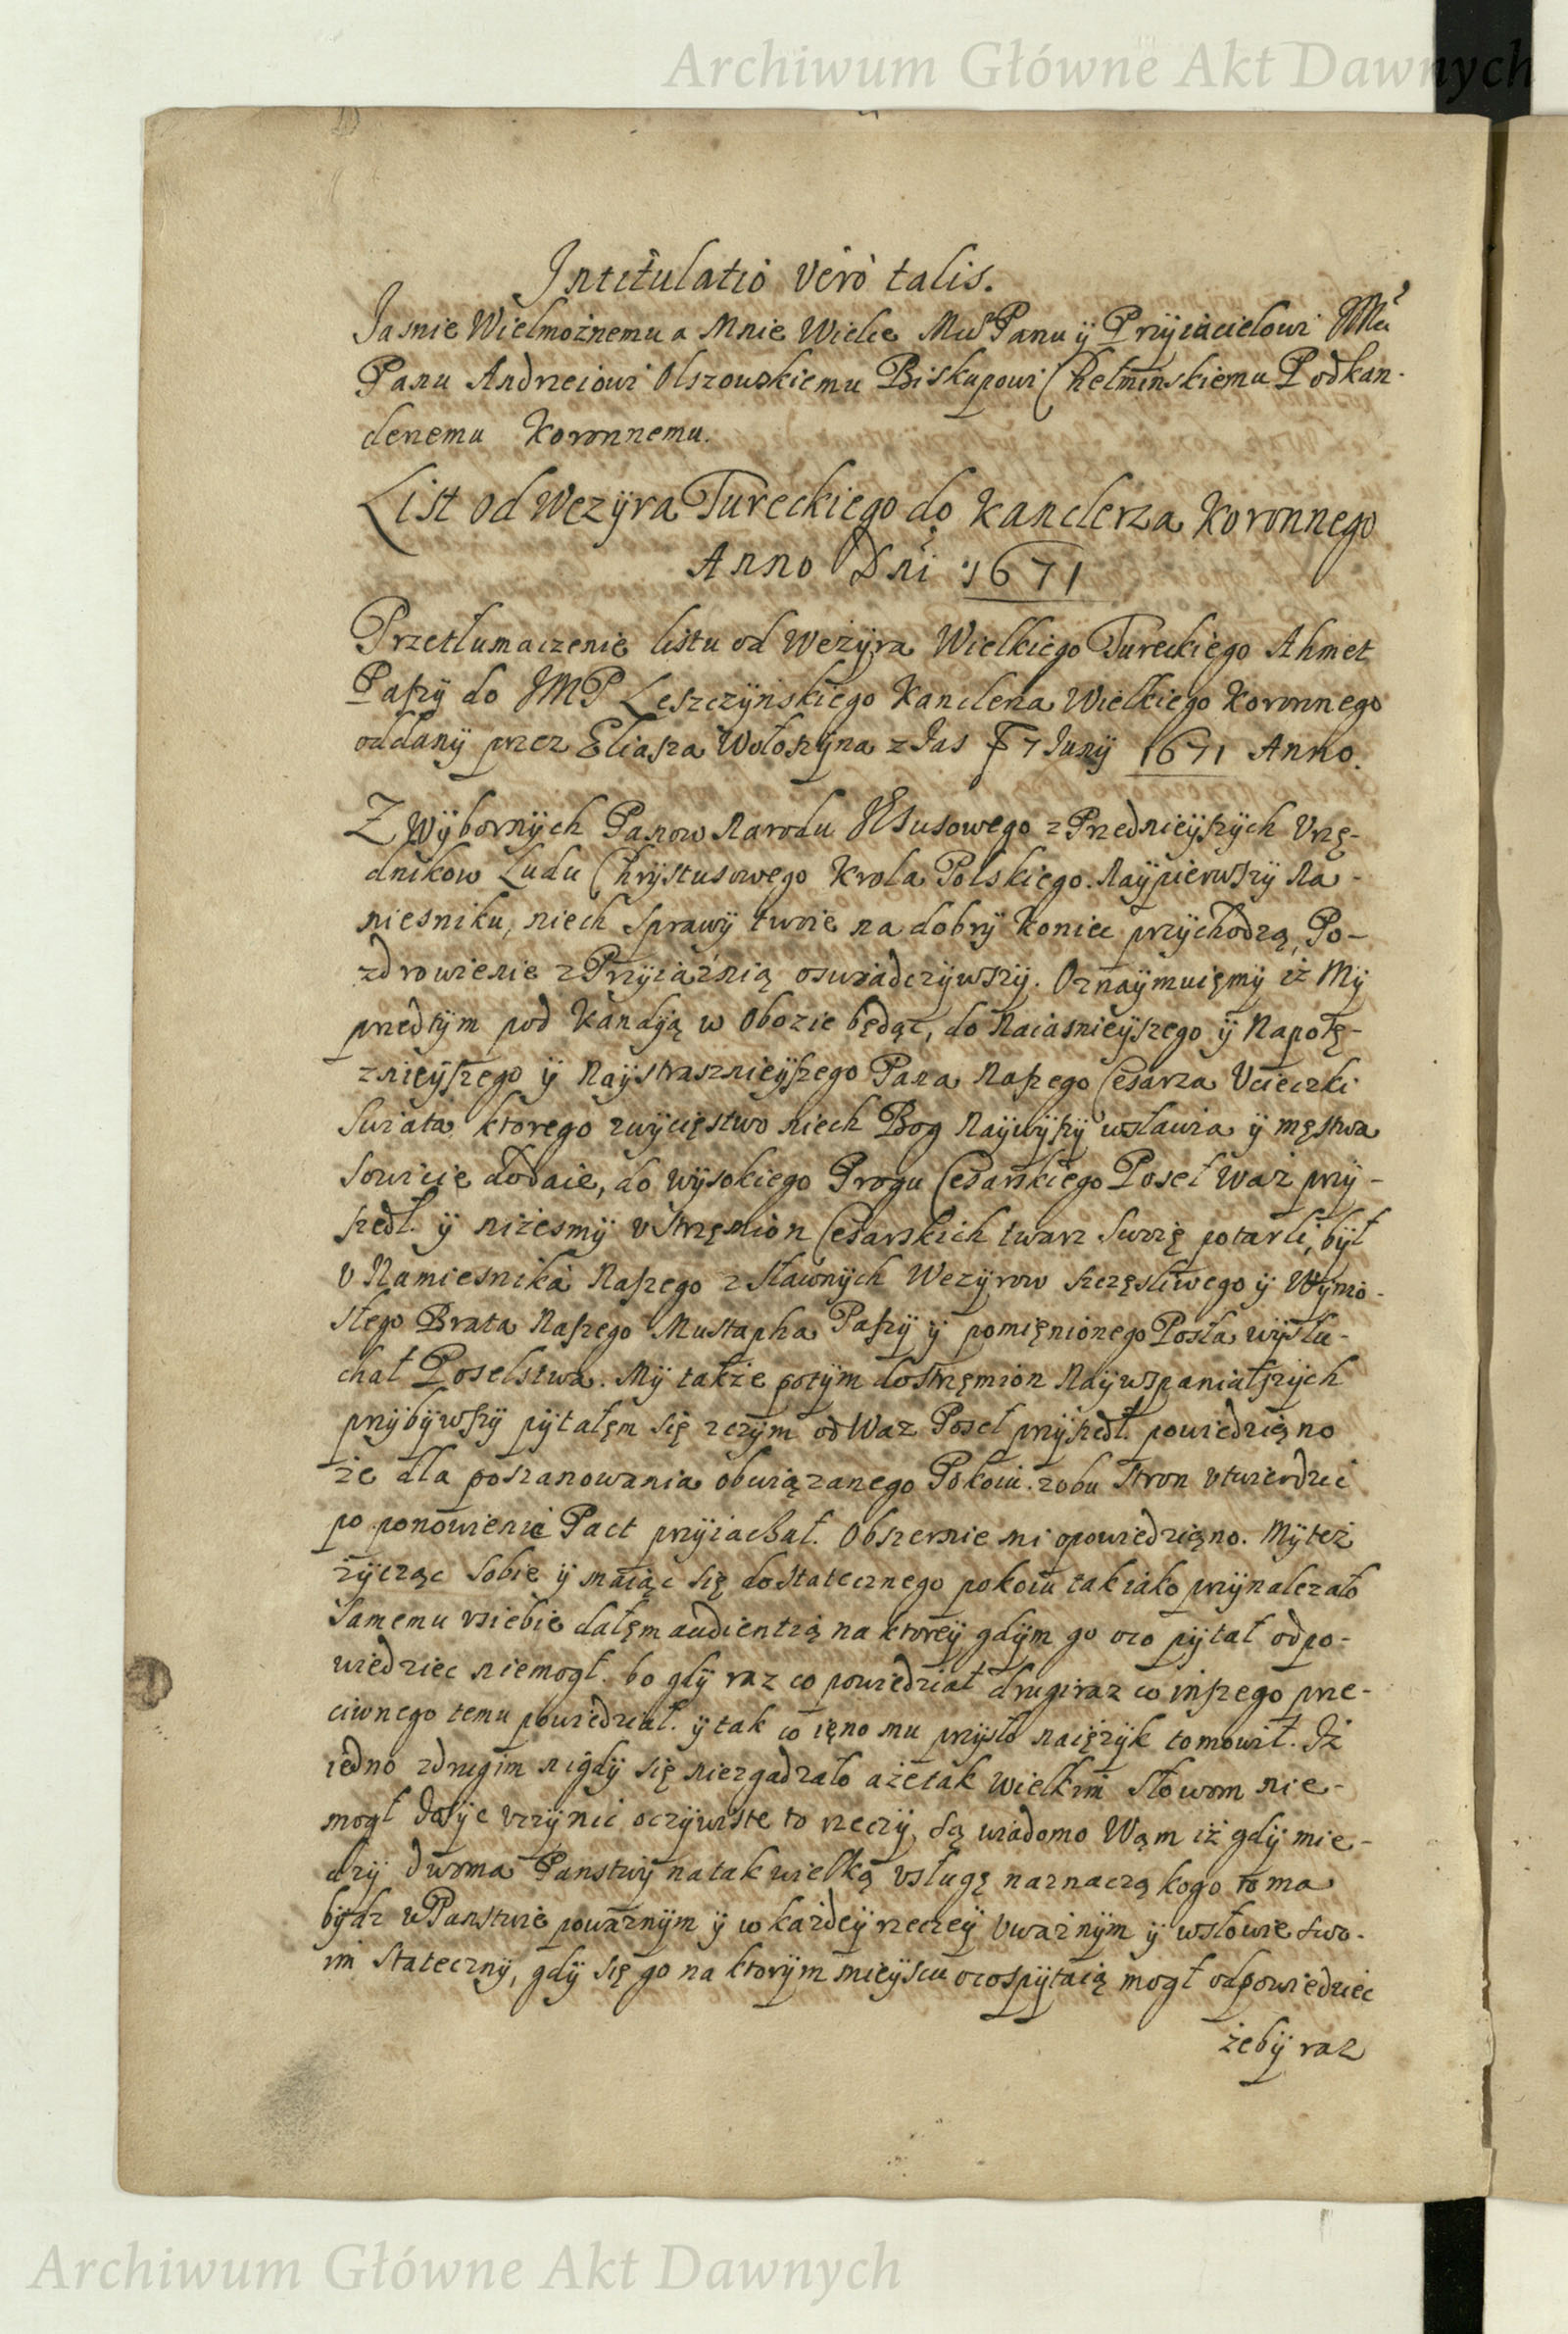 Archiwum Główne Akt Dawnych
Intitulatio vero talis.
Jasnie Wielmożnemu a Mnie Wielce Mu Panu ÿ Prÿiacielowi JMci
Panu Andrzeiowi Olszowskiemu Biskupowi Chełminskiemu Podkan-
clerzemu Koronnemu.
List od Wezÿra Tureckiego do Kanclerza Koronnego
Anno Dni 1671
Przetłumaczenie listu od Wezÿra Wielkiego Tureckiego Ahmet
Paszÿ do JMP Leszczÿnskiego Kanclerza Wielkiego Koronnego
oddanÿ przez Eliasza Wołoszÿna z Jas 7 Junÿ 1671 Anno.
Z Wÿbornÿch Panow Narodu JEsusowego z Przednieÿszÿch Vrzę-
dnikow Ludu Chrÿstusowego Krola Polskiego. Naÿpierwszÿ Na-
miesniku, niech sprawÿ twoie na dobrÿ koniec przÿchodzą, Po-
zdrowienie z Przÿiaźnią oswiadczÿwszÿ. Oznaÿmuięmÿ iż Mÿ
przedtÿm pod Kandÿą w Obozie będąc, do Naiasnieÿszego ÿ Napotę-
znieÿszego ÿ Naÿstrasznieÿszego Pana Naszego Cesarza Vcieczki
Swiata ktorego zwÿcięstwo niech Bog Naÿwÿszÿ wsławia ÿ męstwa
sowicie dodaie, do wÿsokiego Progu Cesarskiego Poseł wasz przÿ-
szedł. ÿ niżesmÿ v Strzęmion Cesarskich twarz swoię potarli, bÿł
v Namiesnika Naszego z sławnÿch Wezÿrow szczęsliwego ÿ Wÿnio-
słego Brata Naszego Mustapha Paszÿ ÿ pomięnionego Posła wÿsłu-
chał Poselstwa. Mÿ także potÿm do strzęmion Naÿwspaniałszÿch
przÿbÿwszÿ pÿtałęm się z czÿm od Waz Poseł przÿszedł. powiedzięno
że dla poszanowania obwiązanego Pokoiu. z obu stron vtwierdzec
po ponowienie Pact przÿiachał. Obszernie mi opowiedzięno. Mÿ też
żÿcząc sobie ÿ maiąc się do statecznego pokoiu tak iako przÿnalezało
samemu v siebie dałęm audientią na ktoreÿ gdÿm go oco pÿtał odpo-
wiedziec niemogł. bo gdÿ raz co powiedział drugi raz co inszego prze-
ciwnego temu powiedział. ÿ tak co ięno mu przÿsło na ięzÿk to mowił. Iż
iedno z drugim nigdÿ się niezgadzało aże tak wielkim słowom nie-
mogł dosÿc vczÿnic oczÿwiste to rzeczÿ, są wiadomo Wąm iż gdÿ mie-
dzÿ dwoma Panstwÿ na tak wielką vsługę naznaczą kogo to ma
bÿdz w Panstwie poważnÿm ÿ w każdeÿ rzeczeÿ vważnÿm ÿ w słowie swo-
im statecznÿ, gdÿ się go na ktorÿm mieÿscu oco spÿtaią mogł odpowiedziec
żebÿ raz
Archiwum Główne Akt Dawnych